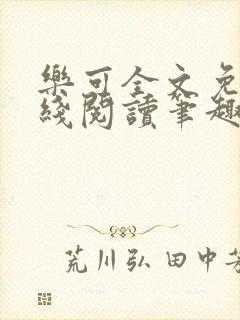 樂可全文免
綫閱讀筆趣
荒川弘 田中芳